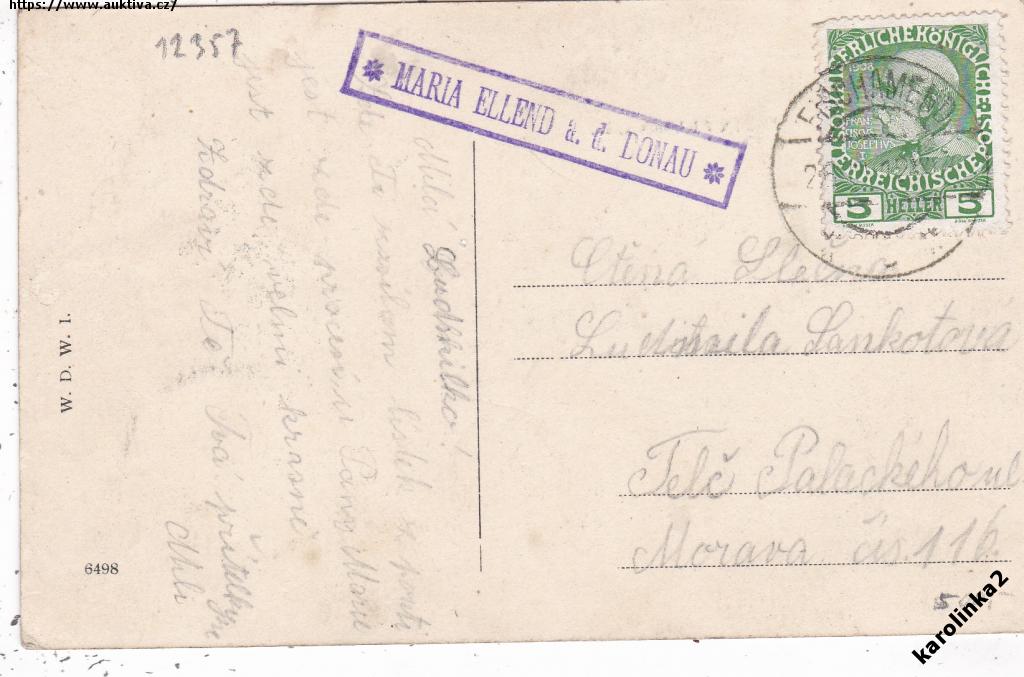 https://www.auktiva.cz/
12357
* MARIA ELLEND a. d. DONAU *
FISCHAMEND
KAISERLICHE KÖNIGLICHE
ÖSTERREICHISCHE POST
FRAN
CISCVS
IOSEPHVS
I
5 HELLER 5
Milá Ludmilko!
Zde Ti posílám lístek z pouti
jest zde procesí Panny Marie
jest zde velmi krásně.
Zdraví Tě Tvá přítelkyně
Mili
Ctěná Slečna
Ludmila Sankotova
Telč Palackého ul
Morava čís 116.
W. D. W. I.
6498
karolinka2